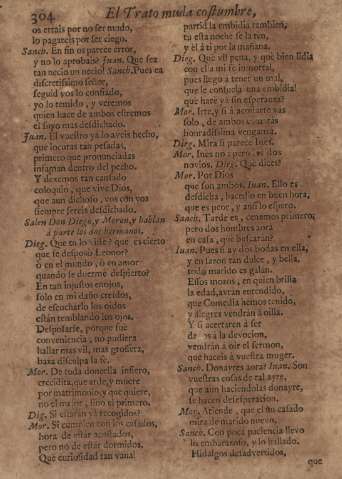 304 El Trato muda costumbre,
os errais por no ser mudo,
lo pagareis por ser ciego.
Sanch. En fin os parece error,
y no lo aprobais? Juan. Que sea
tan necio un necio! Sanch. Pues ea
discretissimo señor,
seguid vos lo confiado,
yo lo temido, y veremos
quien hace de ambos estremos
el suyo mas desdichado.
Juan. El vuestro ya lo aveis hecho,
que locuras tan pesadas,
primero que pronunciadas
infaman dentro del pecho.
Y dexemos tan cansado
coloquio, que vive Dios,
que aun dicholo, vos con vos
siempre sereis desdichado.
Salen Don Diego, y Moron, y hablan
á parte los dos hermanos.
Dieg. Que en lo vide? que es cierto
que se desposó Leonor?
ó en el mundo, ó en amor
quando se duerme despierto?
En tan injustos enojos,
solo en mi daño creidos,
de escucharlo los oidos
están temblando los ojos.
Desposarse, porque fue
conveniencia, no pudiera
hallar mas vil, mas grosera,
baxa disculpa la fe.
Mor. De toda doncella infiero,
crecidita, que arde, y muere
por matrimonio, y que quiere,
no el mejor, sino el primero.
Dig. Si estarán ya recogidos?
Mor. Si cumplen con los casados,
hora de estar acostados,
pero no de estar dormidos.
Que curiosidad tan vana!
partid la embidia tambien,
tu esta noche se la ten,
y él á ti por la mañana.
Dieg. Que vil pena, y que bien lidia
con el a mi fe inmortal,
pues llego a tener un mal,
que le consuela una embidia!
que hace ya sin esperanza?
Mor. Irte, y si á acostarte vas
solo, de ambos tomarás
honradissima venganza.
Dieg. Mira si parece Inés.
Mor. Inés no; pero los dos
novios. Dieg. Que dices?
Mor. Por Dios
que son ambos. Juan. Ello es
desdicha, hacerlo en buen hora,
que es peor, y assi lo espero.
Sanch. Tarde es, cenemos primero;
pero dos hombres aora
en casa, que buscarán?
Juan. Pues si ay dos bodas en ella,
y en saron tan dulce, y bella,
todo marido es galan.
Essos mozos, en quien brilla
la edad, avrán entendido,
que Comedia hemos tenido,
y alegres vendrán á oilla.
Y si acertaren á ser
de la devocion,
vendrán á oir el sermon,
que haceis á vuestra muger.
Sanch. Donayres aora? Juan. Son
vuestras cosas de tal ayre,
que aun haciendolas donayre,
se hacen desesperacion.
Mor. Atiende, que el tu casado
mira de marido nuevo.
Sanch. Con poca paciencia llevo
lo embarazoso, y lo hallado.
Hidalgos desadvertidos,
que